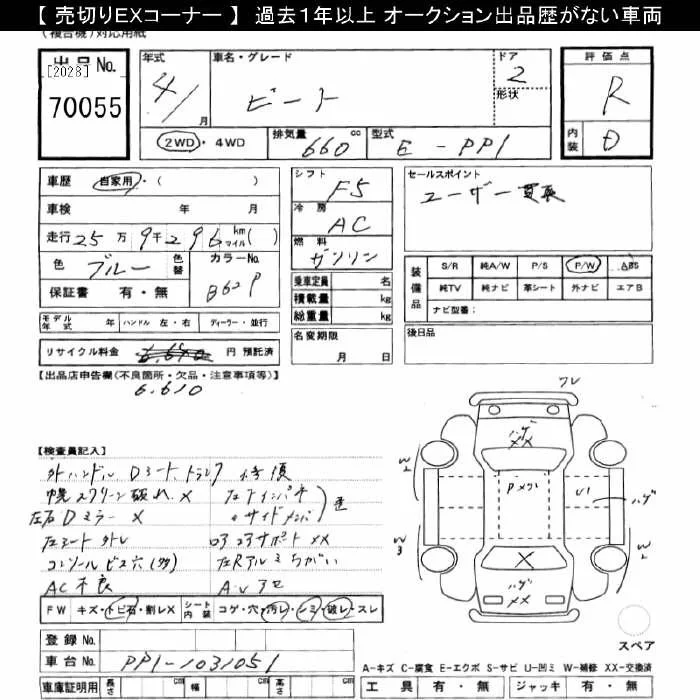 【 売切りEXコーナー 】 過去１年以上 オークション出品歴がない車両
(複合機)対応用紙
出品 No. [2028] 70055
年式 4/ 月
車名・グレード ビート
ドア 2
形状
評価点 R
内装 D
2WD・4WD
排気量 660 cc
型式 E-PP1
車歴 自家用・( )
車検 年 月
走行 25万9千296 km マイル( )
色 ブルー 色替 カラーNo. B62P
保証書 有・無
シフト F5
冷房 AC
燃料 ガソリン
乗車定員 名
積載量 kg
総重量 kg
セールスポイント
ユーザー買取
装備品 S/R 純A/W P/S P/W ABS
純TV 純ナビ 革シート 外ナビ エアB
ナビ型番：
モデル年式 年 ハンドル 左・右 ディーラー・並行
名変期限 月 日
後日品
リサイクル料金 6.640 円 預託済
【出品店申告欄(不良箇所・欠品・注意事項等)】
6.610
【検査員記入】
外ハンドル Dシート、トランク
幌スクリーン破れ X
左右Dミラー X
左シート外レ
コンソールビス穴(多)
AC不良
左インパネ
〃サイドメンバ
コアサポート XX
左Rアルミちがい
フレ
ハゲ
XX
W2
W3
U1
ハゲ
W2
X
ハゲ
XX
FW キズ・トビ石・割レX シート内装 コゲ・穴・汚レ・シミ・破レ・スレ
登録 No.
車台 No. PP1-1031051
車庫証明用 長さ cm 幅 cm 高さ cm
スペア
A-キズ C-腐食 E-エクボ S-サビ U-凹ミ W-補修 XX-交換済
工具 有・無 ジャッキ 有・無